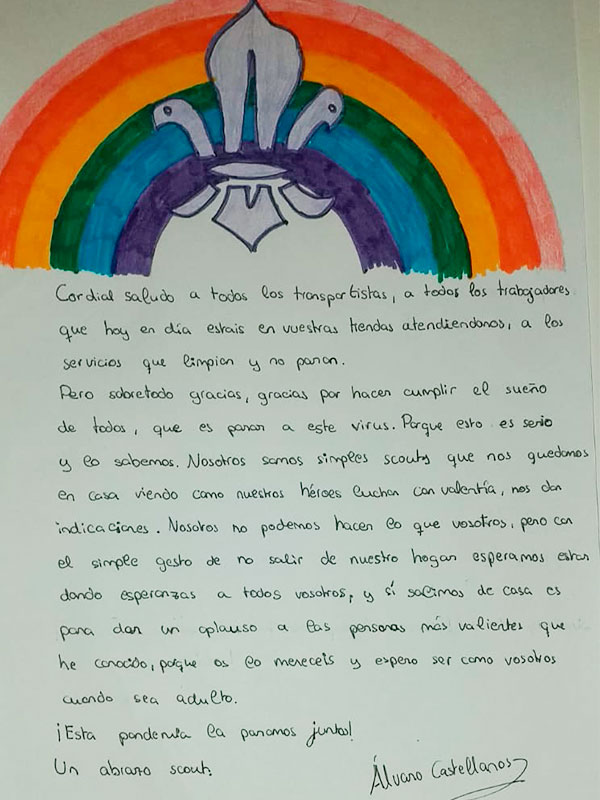 Cordial saludo a todos los transportistas, a todos los trabajadores
que hoy en día estais en vuestras tiendas atendiendonos, a los
servicios que limpian y no paran.
Pero sobretodo gracias, gracias por hacer cumplir el sueño
de todos, que es parar a este virus. Porque esto es serio
y lo sabemos. Nosotros somos simples scouts que nos quedamos
en casa viendo como nuestros héroes luchan con valentía, nos dan
indicaciones. Nosotros no podemos hacer lo que vosotros, pero con
el simple gesto de no salir de nuestro hogar esperamos estar
dando esperanzas a todos vosotros, y sí salimos de casa es
para dar un aplauso a las personas más valientes que
he conocido, porque os lo mereceis y espero ser como vosotros
cuando sea adulto.
¡Esta pandemia la paramos juntos!
Un abrazo scout.
Álvaro Castellanos